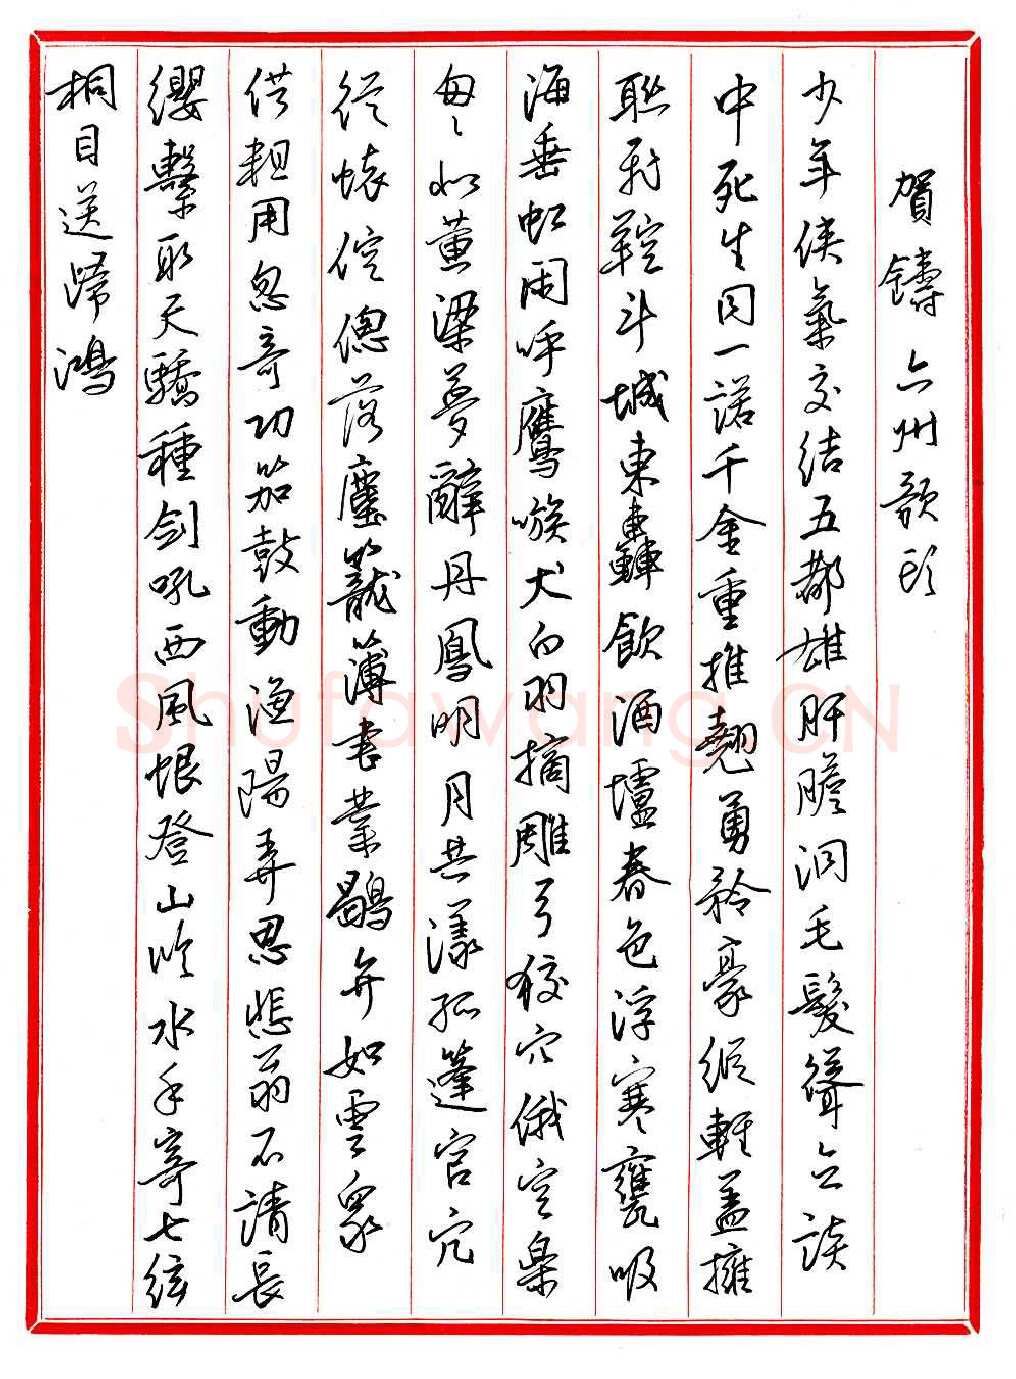 賀鑄 六州歌頭
少年俠氣交結五都雄肝膽洞毛髮聳立談
中死生同一諾千金重推翹勇矜豪縱輕蓋擁
聯飛鞚斗城東轟飲酒壚春色浮寒甕吸
海垂虹閑呼鷹嗾犬白羽摘雕弓狡穴俄空樂
匆匆似黃粱夢辭丹鳳明月共漾孤蓬官冗
從懷倥傯落塵籠簿書叢鶡弁如雲衆
供粗用忽奇功笳鼓動漁陽弄思悲翁不請長
纓繫取天驕種劍吼西風恨登山臨水手寄七絃
桐目送歸鴻
Shufawang.CN